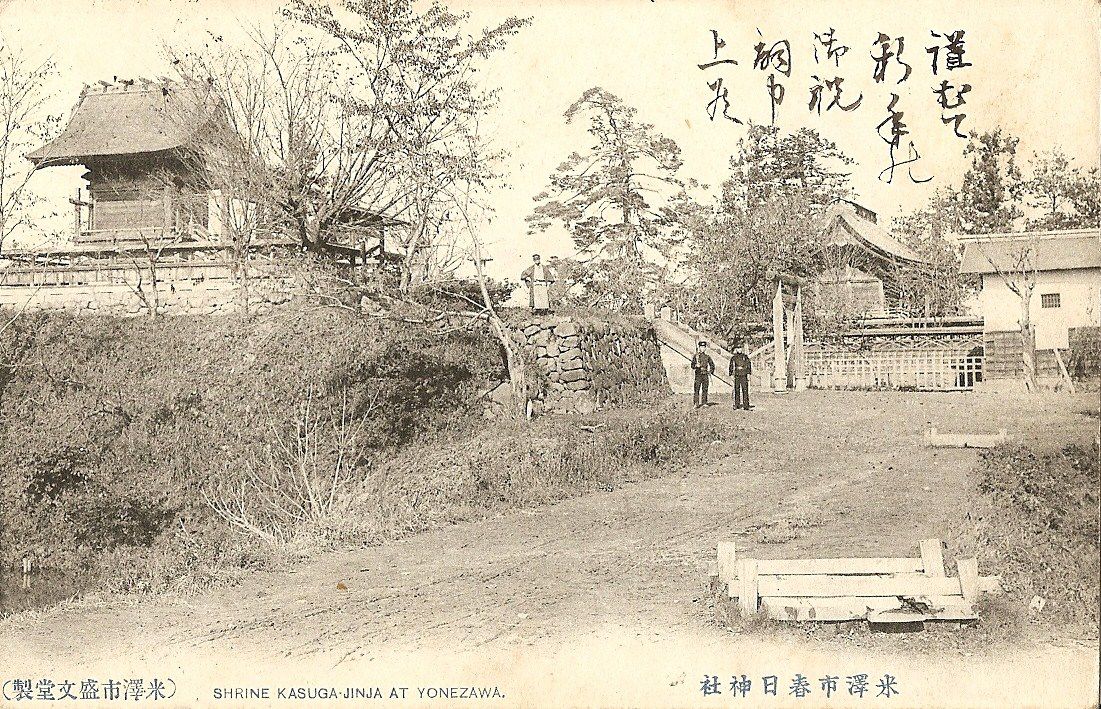 謹むて
新年の
御祝
詞申
上候
米澤市春日神社
SHRINE KASUGA-JINJA AT YONEZAWA.
(米澤市盛文堂製)